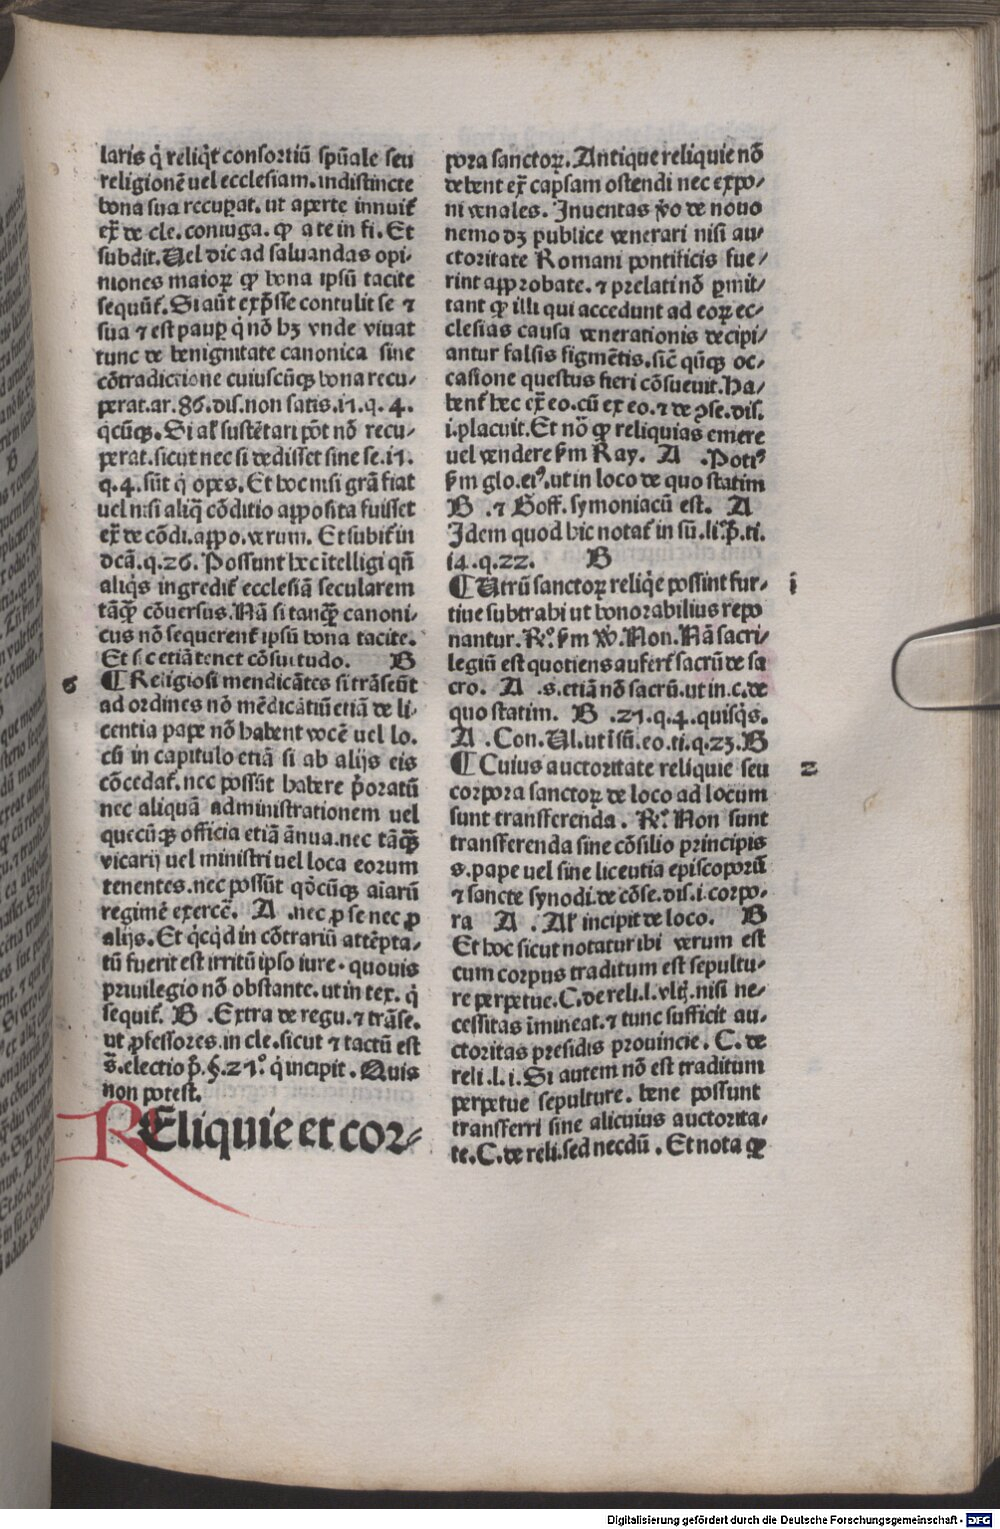 laris q̇ reliq̇t consortiū spūale seu
religionē uel ecclesiam.indistincte
bona sua recuꝑat.ut aperte innuiť
ex̄ de cle.coniuga.ꝙ a te in fi.Et
subdit.Uel dic ad saluandas opi⸗
niones maioꝝ ꝙ bona ipsū tacite
sequūť.Si aūt exp̄sse contulit se ⁊
sua ⁊ est pauꝑ q̇ nō hꝫ vnde viuat
tunc de benignitate canonica sine
cōtradictione cuiuscūqꝫ bona recu⸗
perat.ar.86.dis.non satis.i1.q.4.
q̇cūqꝫ.Si aľ sustētari pōt nō recu⸗
perat.sicut nec si dedisset sine se.i1.
q.4.sūt q̇ opes.Et hoc nisi grā fiat
uel nisi aliq̄ cōditio apposita fuisset
ex̄ de cōdi.appo.verum. Et subiť in
dcā.q.26.Possunt hec ītelligi qn̄
aliq̇s ingrediť ecclesiā secularem
tāꝙ̄ cōuersus.Nā si tanꝙ̄ canoni⸗
cus nō sequerenť ipsū bona tacite.
Et sic etiā tenet cōsuetudo. B
6 ¶ Religiosi mendicātes si trāseūt
ad ordines nō mēdicātiū etiā de li⸗
centia pape nō habent vocē uel lo.
cū in capitulo etiā si ab alijs eis
cōcedať.nec possūt habere p̄oratū
nec aliquā administrationem uel
quecūqꝫ officia etiā ānua.nec tāꝙ̄
vicarij uel ministri uel loca eorum
tenentes.nec possūt qōcūqꝫ aīarū
regimē exercē. A .nec ꝓ se nec ꝓ
alijs.Et q̇cq̇d in cōtrariū attēpta⸗
tū fuerit est irritū ipso iure.quouis
priuilegio nō obstante.ut in tex. q̇
sequiť. B .Extra de regu.⁊ trāse.
ut ꝓfessores.in cle.sicut ⁊ tactū est
s̄.electio p̄.§.21°.q̇ incipit.Quis
non potest.
REliquie et cor⸗
pora sanctoꝝ.Antique reliquie nō
debent ex̄ capsam ostendi nec expo⸗
ni venales. Inuentas v̄o de nouo
nemo dꝫ publice venerari nisi au⸗
ctoritate Romani pontificis fue⸗
rint approbate.⁊ prelati nō ꝑmit⸗
tant ꝙ illi qui accedunt ad eoꝝ ec⸗
clesias causa venerationis decipi⸗
antur falsis figmētis.sic̄ qn̄qꝫ oc⸗
casione questus fieri cōsueuit.Ha⸗
benť hec ex̄ eo.cū ex eo.⁊ de ꝯse.dis.
i.placuit.Et nō ꝙ reliquias emere
uel vendere ẜm Ray. A .Potiꝰ
ẜm glo.eiꝰ.ut in loco de quo statim
B .⁊ Hoff.symoniacū est. A
Idem quod hic notať in sū.li°.p̄.ti.
14.q.22. B
¶ Utrū sanctoꝝ reliq̇e possint fur⸗ i
tiue subtrahi ut honorabilius repo
nantur.R°.ẜm W.Non.Nā sacri⸗
legiū est quotiens auferť sacrū de sa
cro. A .s.etiā nō sacrū.ut in.c.de
quo statim. B .21.q.4.quisq̇s.
A .Con.Ul.ut ī sū.eo.ti.q.23.B
¶ Cuius auctoritate reliquie seu 2
corpora sanctoꝝ de loco ad locum
sunt transferenda. R°.Non sunt
transferenda sine cōsilio principis
s.pape uel sine licentia episcoporū
⁊ sancte synodi.de cōse.dis.i.corpo⸗
ra A .Aľ incipit de loco. B
Et hoc sicut notatur ibi verum est
cum corpus traditum est sepultu⸗
re perpetue.C.de reli.l.vlṫ.nisi ne⸗
cessitas īmineat.⁊ tunc sufficit au⸗
ctoritas presidis prouincie. C.de
reli.l.i.Si autem nō est traditum
perpetue sepulture. bene possunt
transferri sine alicuius auctorita⸗
te.C.de reli.sed necdū.Et nota ꝙ
Digitalisierung gefördert durch die Deutsche Forschungsgemeinschaft - DFG